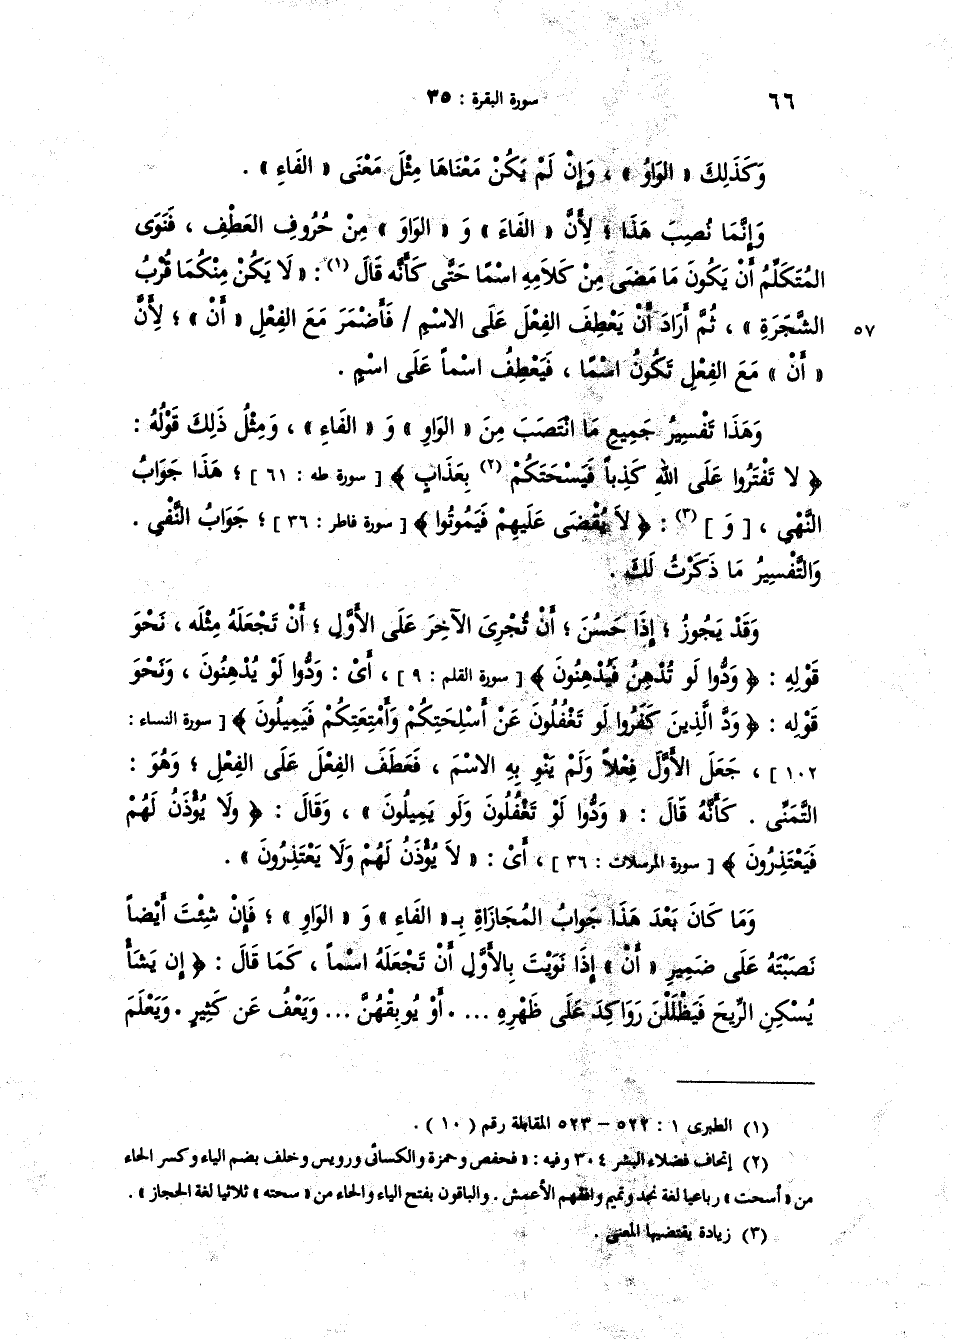 ٦٦
سورة البقرة : ٣٥
وَكَذَلِكَ « الوَاوُ » ، وَإِنْ لَمْ يَكُنْ مَعْنَاهَا مِثْلَ مَعْنَى « الفَاءِ » .
وَإِنَّمَا نُصِبَ هَذَا ؛ لِأَنَّ « الفَاءَ » وَ « الوَاوَ » مِنْ حُرُوفِ العَطْفِ ، فَنَوَى
المُتَكَلِّمُ أَنْ يَكُونَ مَا مَضَى مِنْ كَلَامِهِ اسْمًا حَتَّى كَأَنَّه قَالَ (١) : « لَا يَكُنْ مِنْكُمَا قُرْبُ
الشَّجَرَةِ » ، ثُمَّ أَرَادَ أَنْ يَعْطِفَ الفِعْلَ عَلَى الاسْمِ / فَأَضْمَرَ مَعَ الفِعْلِ « أَنْ » ؛ لِأَنَّ
٥٧
« أَنْ » مَعَ الفِعْلِ تَكُونُ اسْمًا ، فَيَعْطِفُ اسْماً عَلَى اسْمٍ .
وَهَذَا تَفْسِيرُ جَمِيعِ مَا انْتَصَبَ مِنَ « الوَاوِ » وَ « الفَاءِ » ، وَمِثْلُ ذَلِكَ قَوْلُهُ :
﴿ لا تَفْتَرُوا عَلَى اللهِ كَذِباً فَيَسْحَتَكُمْ (٢) بِعَذَابٍ ﴾ [ سورة طه : ٦١ ] ؛ هَذَا جَوَابُ
النَّهْيِ ، [ وَ ] (٣) : ﴿ لاَ يُقْضَى عَلَيهِمْ فَيَمُوتُوا ﴾ [ سورة فاطر : ٣٦ ] ؛ جَوَابُ النَّفْيِ .
وَالتَّفْسِيرُ مَا ذَكَرْتُ لَكَ .
وَقَدْ يَجُوزُ ؛ إِذَا حَسُنَ ؛ أَنْ تُجْرِىَ الآخِرَ عَلَى الأَوَّلِ ؛ أَنْ تَجْعَلَهُ مِثْلَه ، نَحْوَ
قَوْلِهِ : ﴿ وَدُّوا لَو تُدْهِنُ فَيُدْهِنُونَ ﴾ [ سورة القلم : ٩ ] ، أَىْ : وَدُّوا لَوْ يُدْهِنُونَ ، وَنَحْوَ
قَوْلِه : ﴿ وَدَّ الَّذِينَ كَفَرُوا لَو تَغْفُلُونَ عَنْ أَسْلِحَتِكُمْ وَأَمْتِعَتِكُمْ فَيَمِيلُونَ ﴾ [ سورة النساء :
١٠٢ ] ، جَعَلَ الأَوَّلَ فِعْلاً وَلَمْ يَنْوِ بِهِ الاسْمَ ، فَعَطَفَ الفِعْلَ عَلَى الفِعْلِ ؛ وَهُوَ :
التَّمَنِّى . كَأَنَّهُ قَالَ : « وَدُّوا لَوْ تَغْفُلُونَ وَلَو يَمِيلُونَ » ، وَقَالَ : ﴿ وَلَا يُؤْذَنُ لَهُمْ
فَيَعْتَذِرُونَ ﴾ [ سورة المرسلات : ٣٦ ] ، أَىْ : « لاَ يُؤْذَنُ لَهُمْ وَلَا يَعْتَذِرُونَ » .
وَمَا كَانَ بَعْدَ هَذَا جَوابُ المُجَازَاةِ بِـ « الفَاءِ » وَ « الوَاوِ » ؛ فَإِنْ شِئْتَ أَيْضاً
نَصَبْتَهُ عَلَى ضَمِيرِ « أَنْ » إِذَا نَوَيْتَ بِالأَوَّلِ أَنْ تَجْعَلَهُ اسْماً ، كَمَا قَالَ : ﴿ إِن يَشَأْ
يُسْكِنِ الرِّيحَ فَيَظْلَلْنَ رَوَاكِدَ عَلَى ظَهْرِهِ ... . أَوْ يُوبِقْهُنَّ ... وَيَعْفُ عَن كَثِيرٍ . وَيَعْلَمَ
(١) الطبرى ١ : ٥٢٢ – ٥٢٣ المقابلة رقم ( ١٠ ) .
(٢) إتحاف فضلاء البشر ٣٠٤ وفيه : « فحفص وحمزة والكسائى ورويس وخلف بضم الياء وكسر الحاء
من « أسحت » رباعيا لغة نجد وتميم وافقهم الأعمش . والباقون بفتح الياء والحاء من « سحته » ثلاثيا لغة الحجاز » .
(٣) زيادة يقتضيها المعنى .